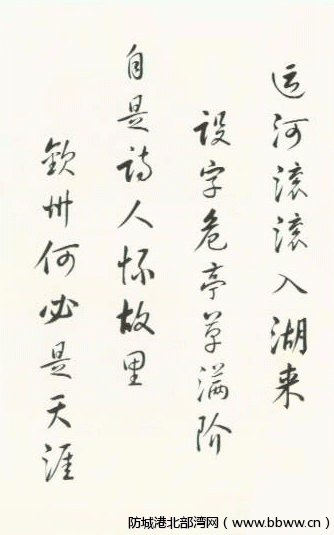 运河滚滚入湖来
设字危亭草满阶
自是诗人怀故里
钦州何必是天涯
防城港北部湾网（www.bbww.cn）